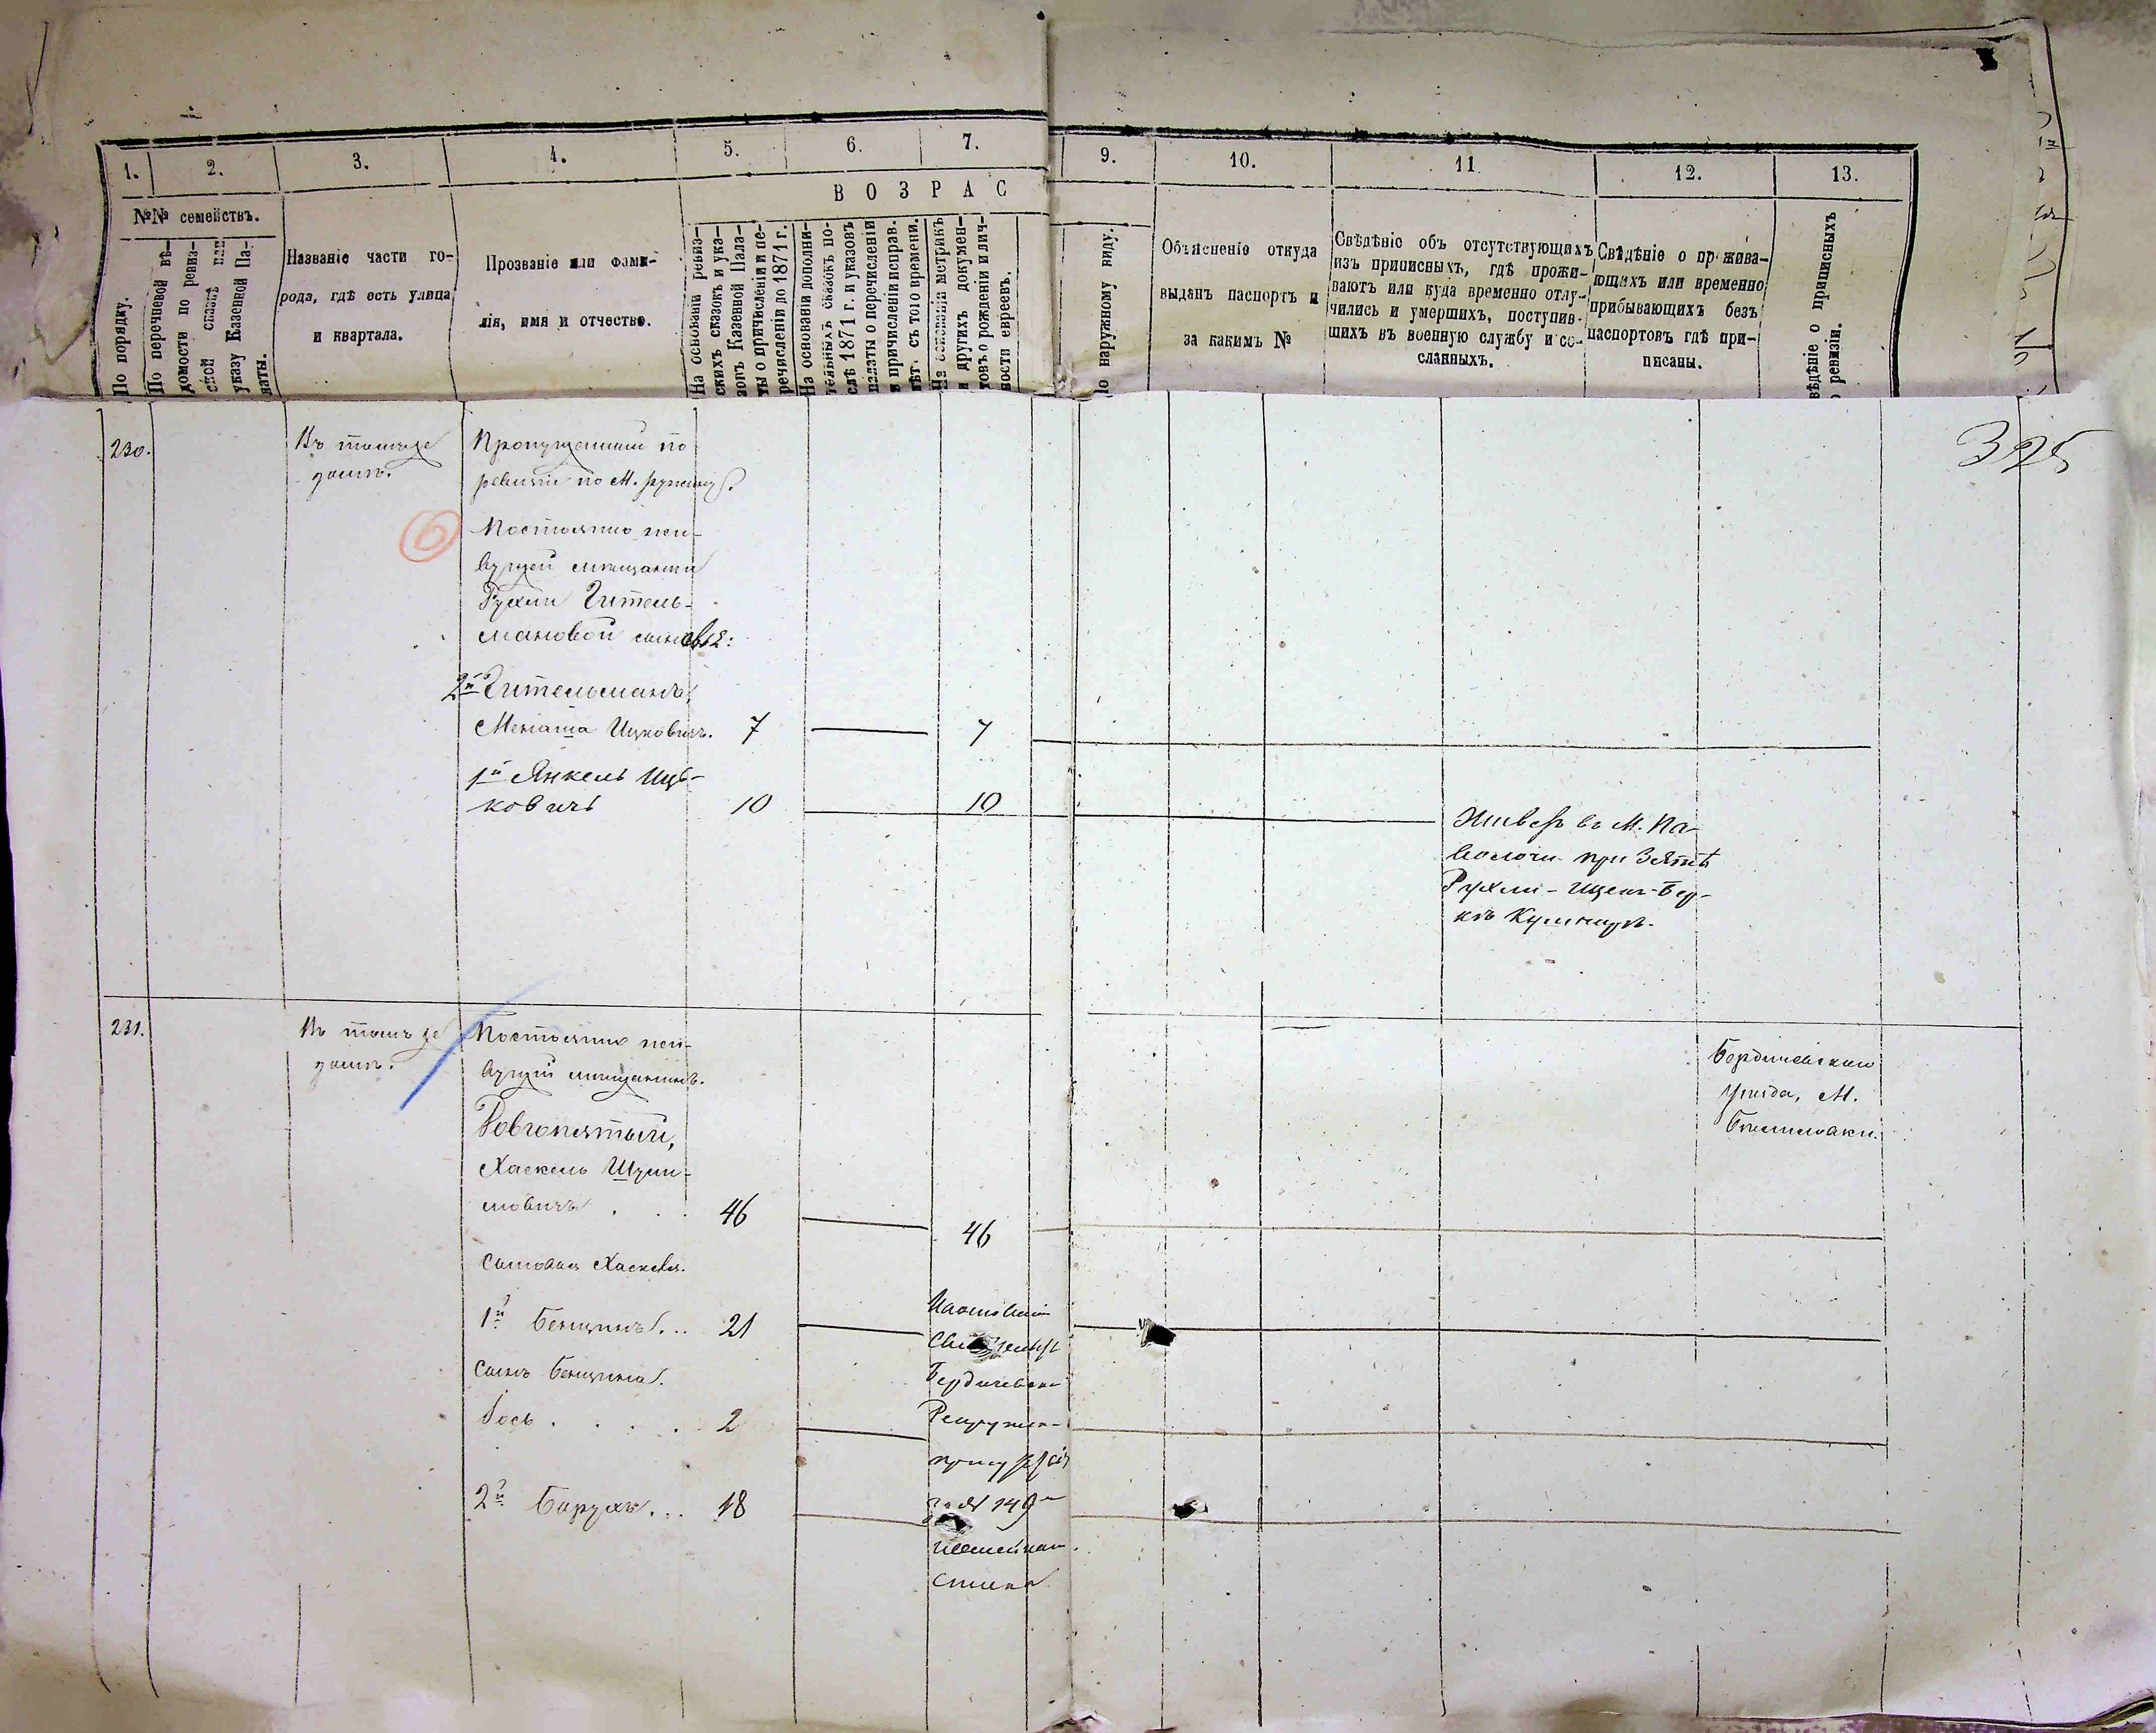 1.
2.
3.
4.
5.
6.
7.
9.
10.
11.
12.
13.
ВОЗРАС
№№ семействъ.
По порядку.
По перечневой вѣ-
домости по ревиз-
ской сказкѣ или
указу Казенной Па-
латы.
Названіе части го-
рода, гдѣ есть улица
и квартала.
Прозваніе или фами-
лія, имя и отчество.
На основаніи ревиз-
скихъ сказокъ и ука-
зовъ Казенной Пала-
ты о причисленіи и пе-
речисленіи до 1871 г.
На основаніи дополни-
тельныхъ сказокъ по-
слѣ 1871 г. и указовъ
палаты о перечисленіи
и причисленіи исправ.
лѣт. съ того времени.
На основаніи метрикъ
и другихъ докумен-
товъ о рожденіи и лич-
ности евреевъ.
По наружному виду.
Объясненіе откуда
выданъ паспортъ и
за какимъ №
Свѣдѣніе объ отсутствующихъ
изъ приписныхъ, гдѣ прожи-
ваютъ или куда временно отлу-
чились и умершихъ, поступив-
шихъ въ военную службу и со-
сланныхъ.
Свѣдѣніе о прожива-
ющихъ или временно
прибывающихъ безъ
паспортовъ гдѣ при-
писаны.
вѣдѣніе о приписныхъ
о ревизіи.
325
230.
Въ томъ же
домѣ.
Пропущенный по
ревизіи по М. Ружину.
6
Постоянно жи-
вущей мѣщанки
Рухли Гительмановой сыновья:
2й Гительманъ,
Менаша Ицковичъ. 7 7
1й Янкель Иць-
ковичъ 10 10
Живетъ въ М. Па-
волочи при Зятѣ
Рухли - Ицек-Бер-
кѣ
231.
Въ томъ же
домѣ.
Постоянно жи-
вущій мѣщанинъ.
Довгопятый,
Хаскель Шули-
мовичъ . . . 46 46
Бердичевскаго
Уѣзда, М.
Сыновья Хаскеля.
1й Бенціонъ... 21
Сынъ Бенціона.
Іось . . . . 2
2й Барухъ... 18
На основаніи
Бердичевскаго
Рекрутск-
присутствія
за № 149
посемейнаго
списка